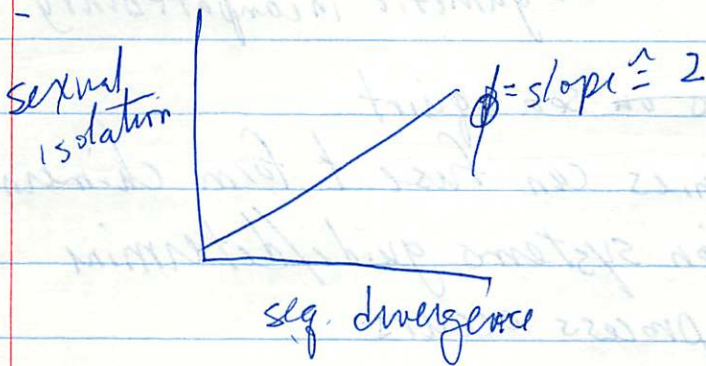 sexual
isolation
ϕ = slope ≙ 2
seq. divergence